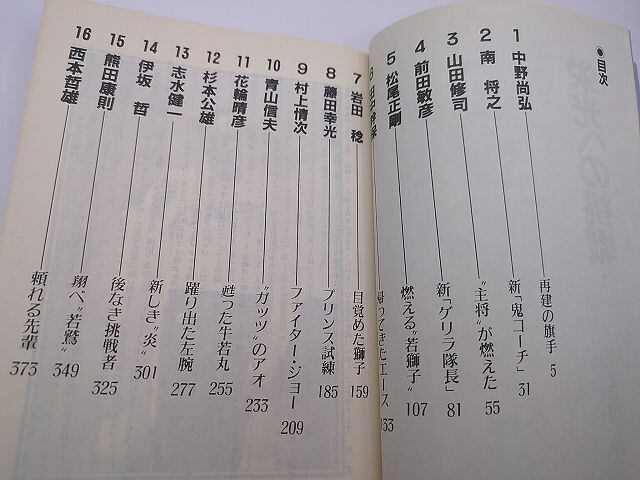 ●目次
1 中野尚弘 再建の旗手 5
2 南 将之 新「鬼コーチ」 31
3 山田修司 “主将”が燃えた 55
4 前田敏彦 新「ゲリラ隊長」 81
5 松尾正剛 燃える“若獅子” 107
6 帰ってきたエース 133
7 岩田 稔 目覚めた獅子 159
8 藤田幸光 プリンス試練 185
9 村上情次 ファイター・ジョー 209
10 青山信夫 “ガッツ”のアオ 233
11 花輪晴彦 甦った牛若丸 255
12 杉本公雄 躍り出た左腕 277
13 志水健一 新しき“炎” 301
14 伊坂 哲 後なき挑戦者 325
15 熊田康則 翔べ“若鷲” 349
16 西本哲雄 頼れる先輩 373